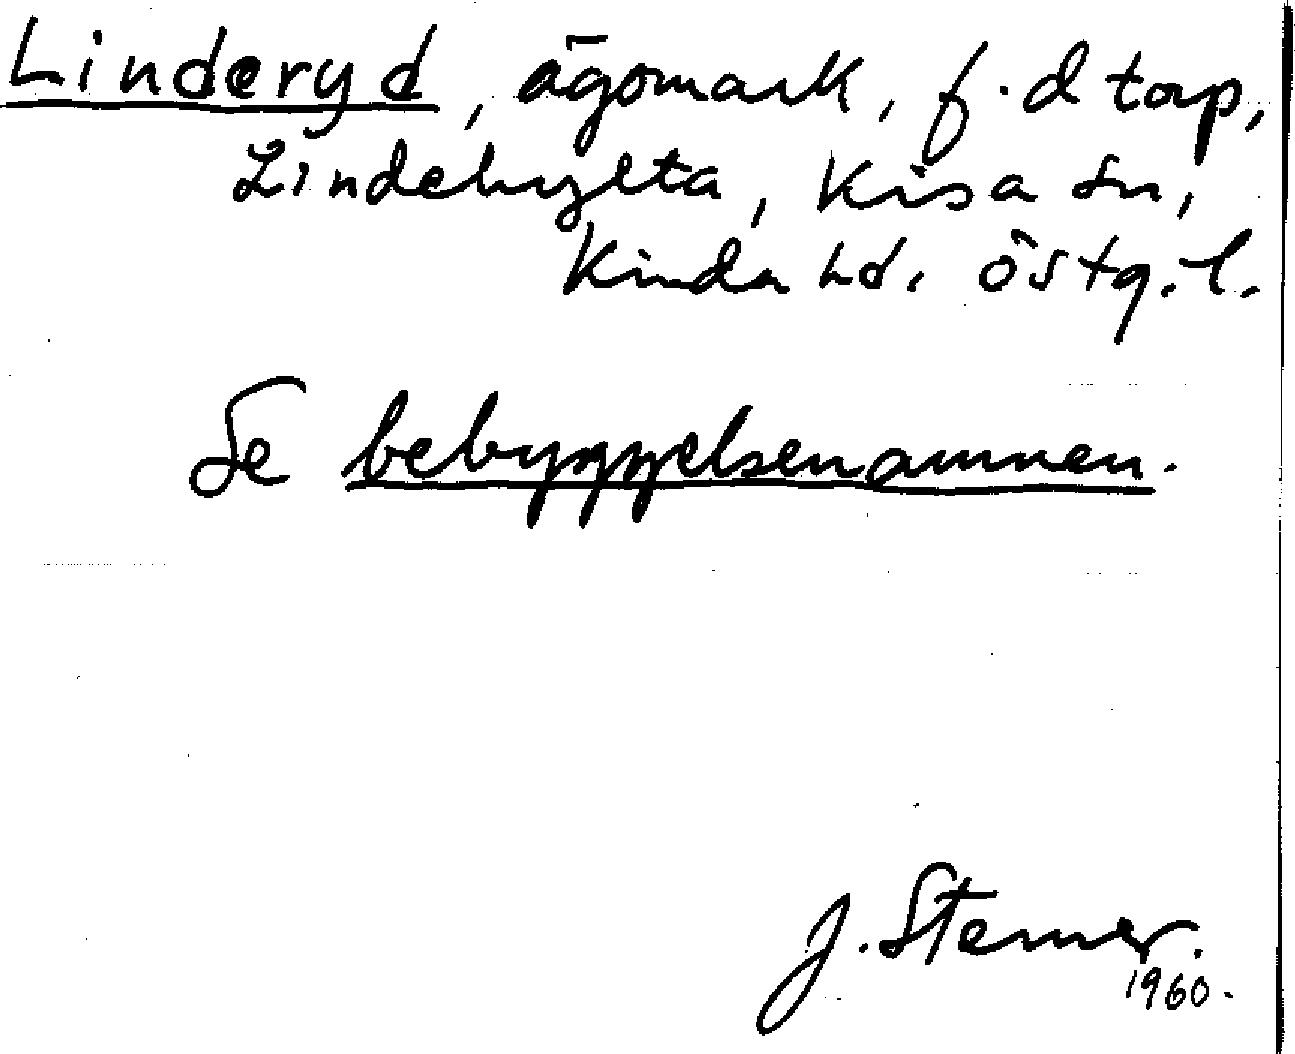 Linderyd, ägomark, f.d torp,
Lindehylta, Kisa sn,
Kinda hd. Östg.l.
Se bebyggelsenamnen.
J. Sterner.
1960.